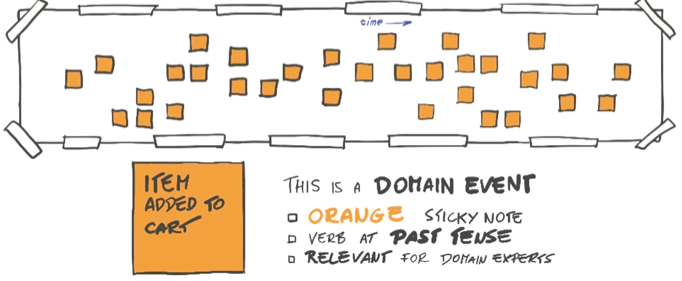 time
ITEM
ADDED TO
CART
THIS IS A DOMAIN EVENT
ORANGE STICKY NOTE
VERB AT PAST TENSE
RELEVANT FOR DOMAIN EXPERTS